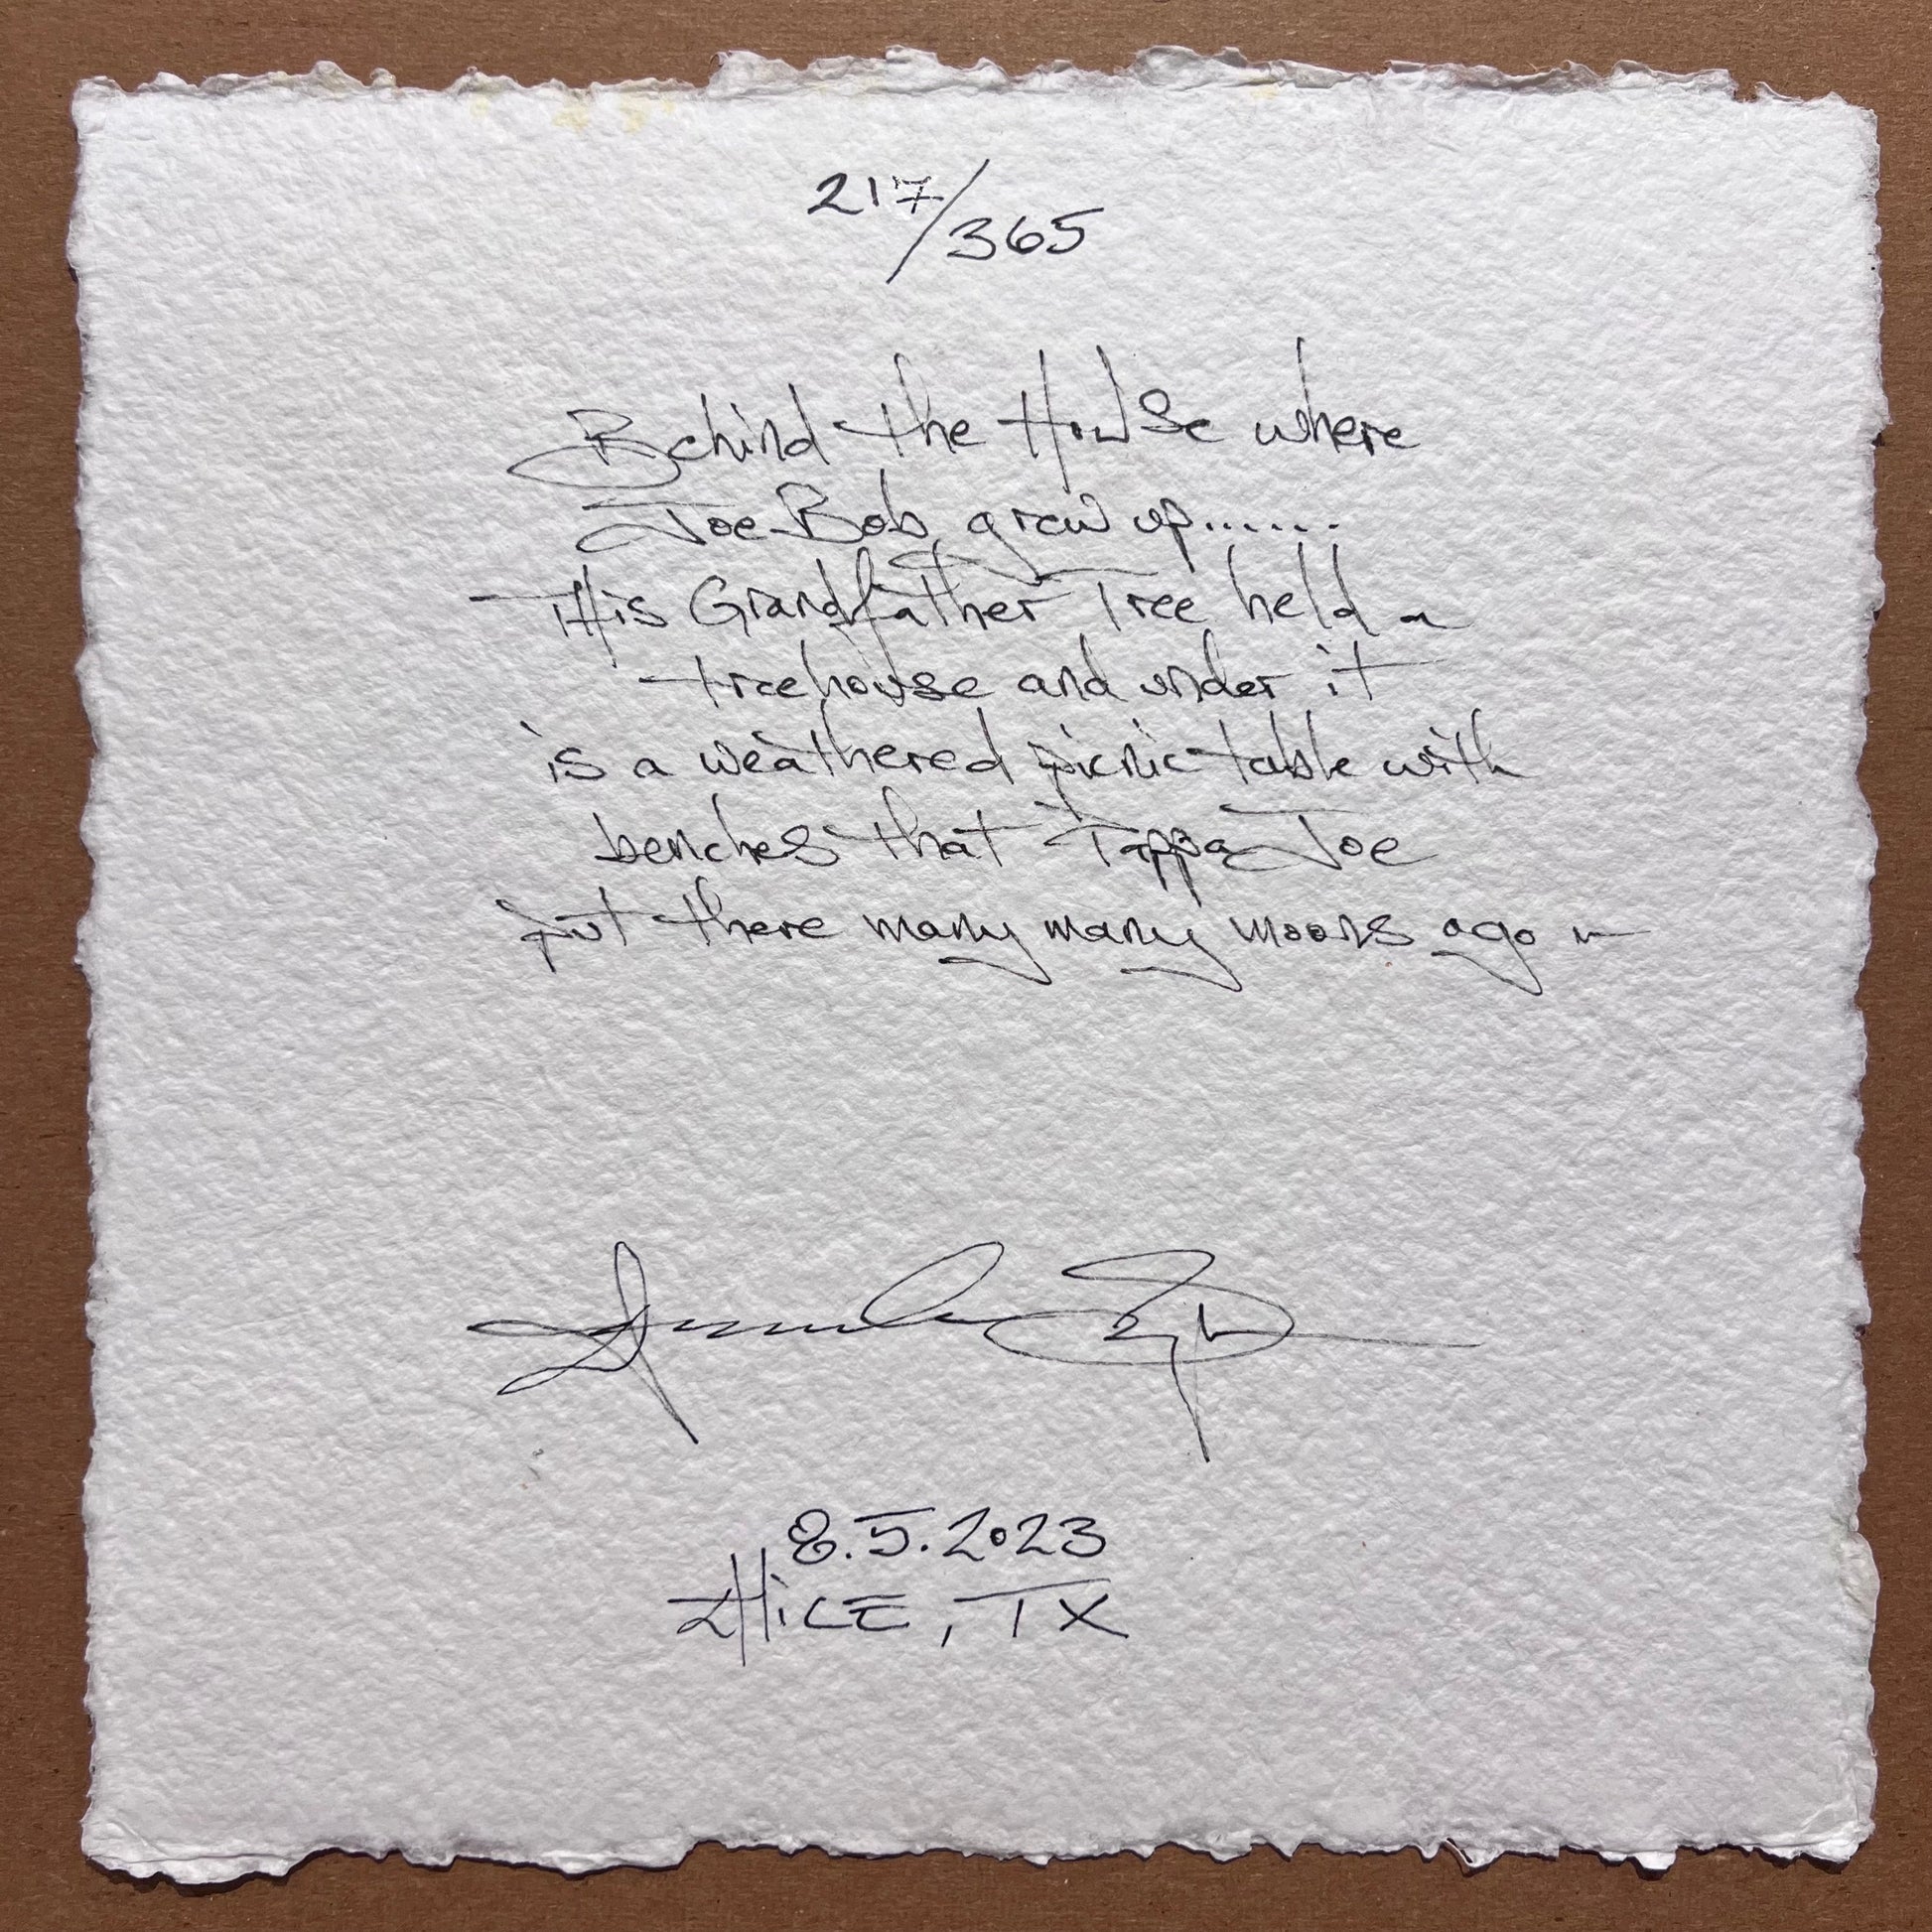 217/365
Behind the House where
Joe Bob grew up......
This Grandfather Tree held a
treehouse and under it
is a weathered picnic table with
benches that Pappa Joe
put there many many moons ago
8.5.2023
AliCE, TX